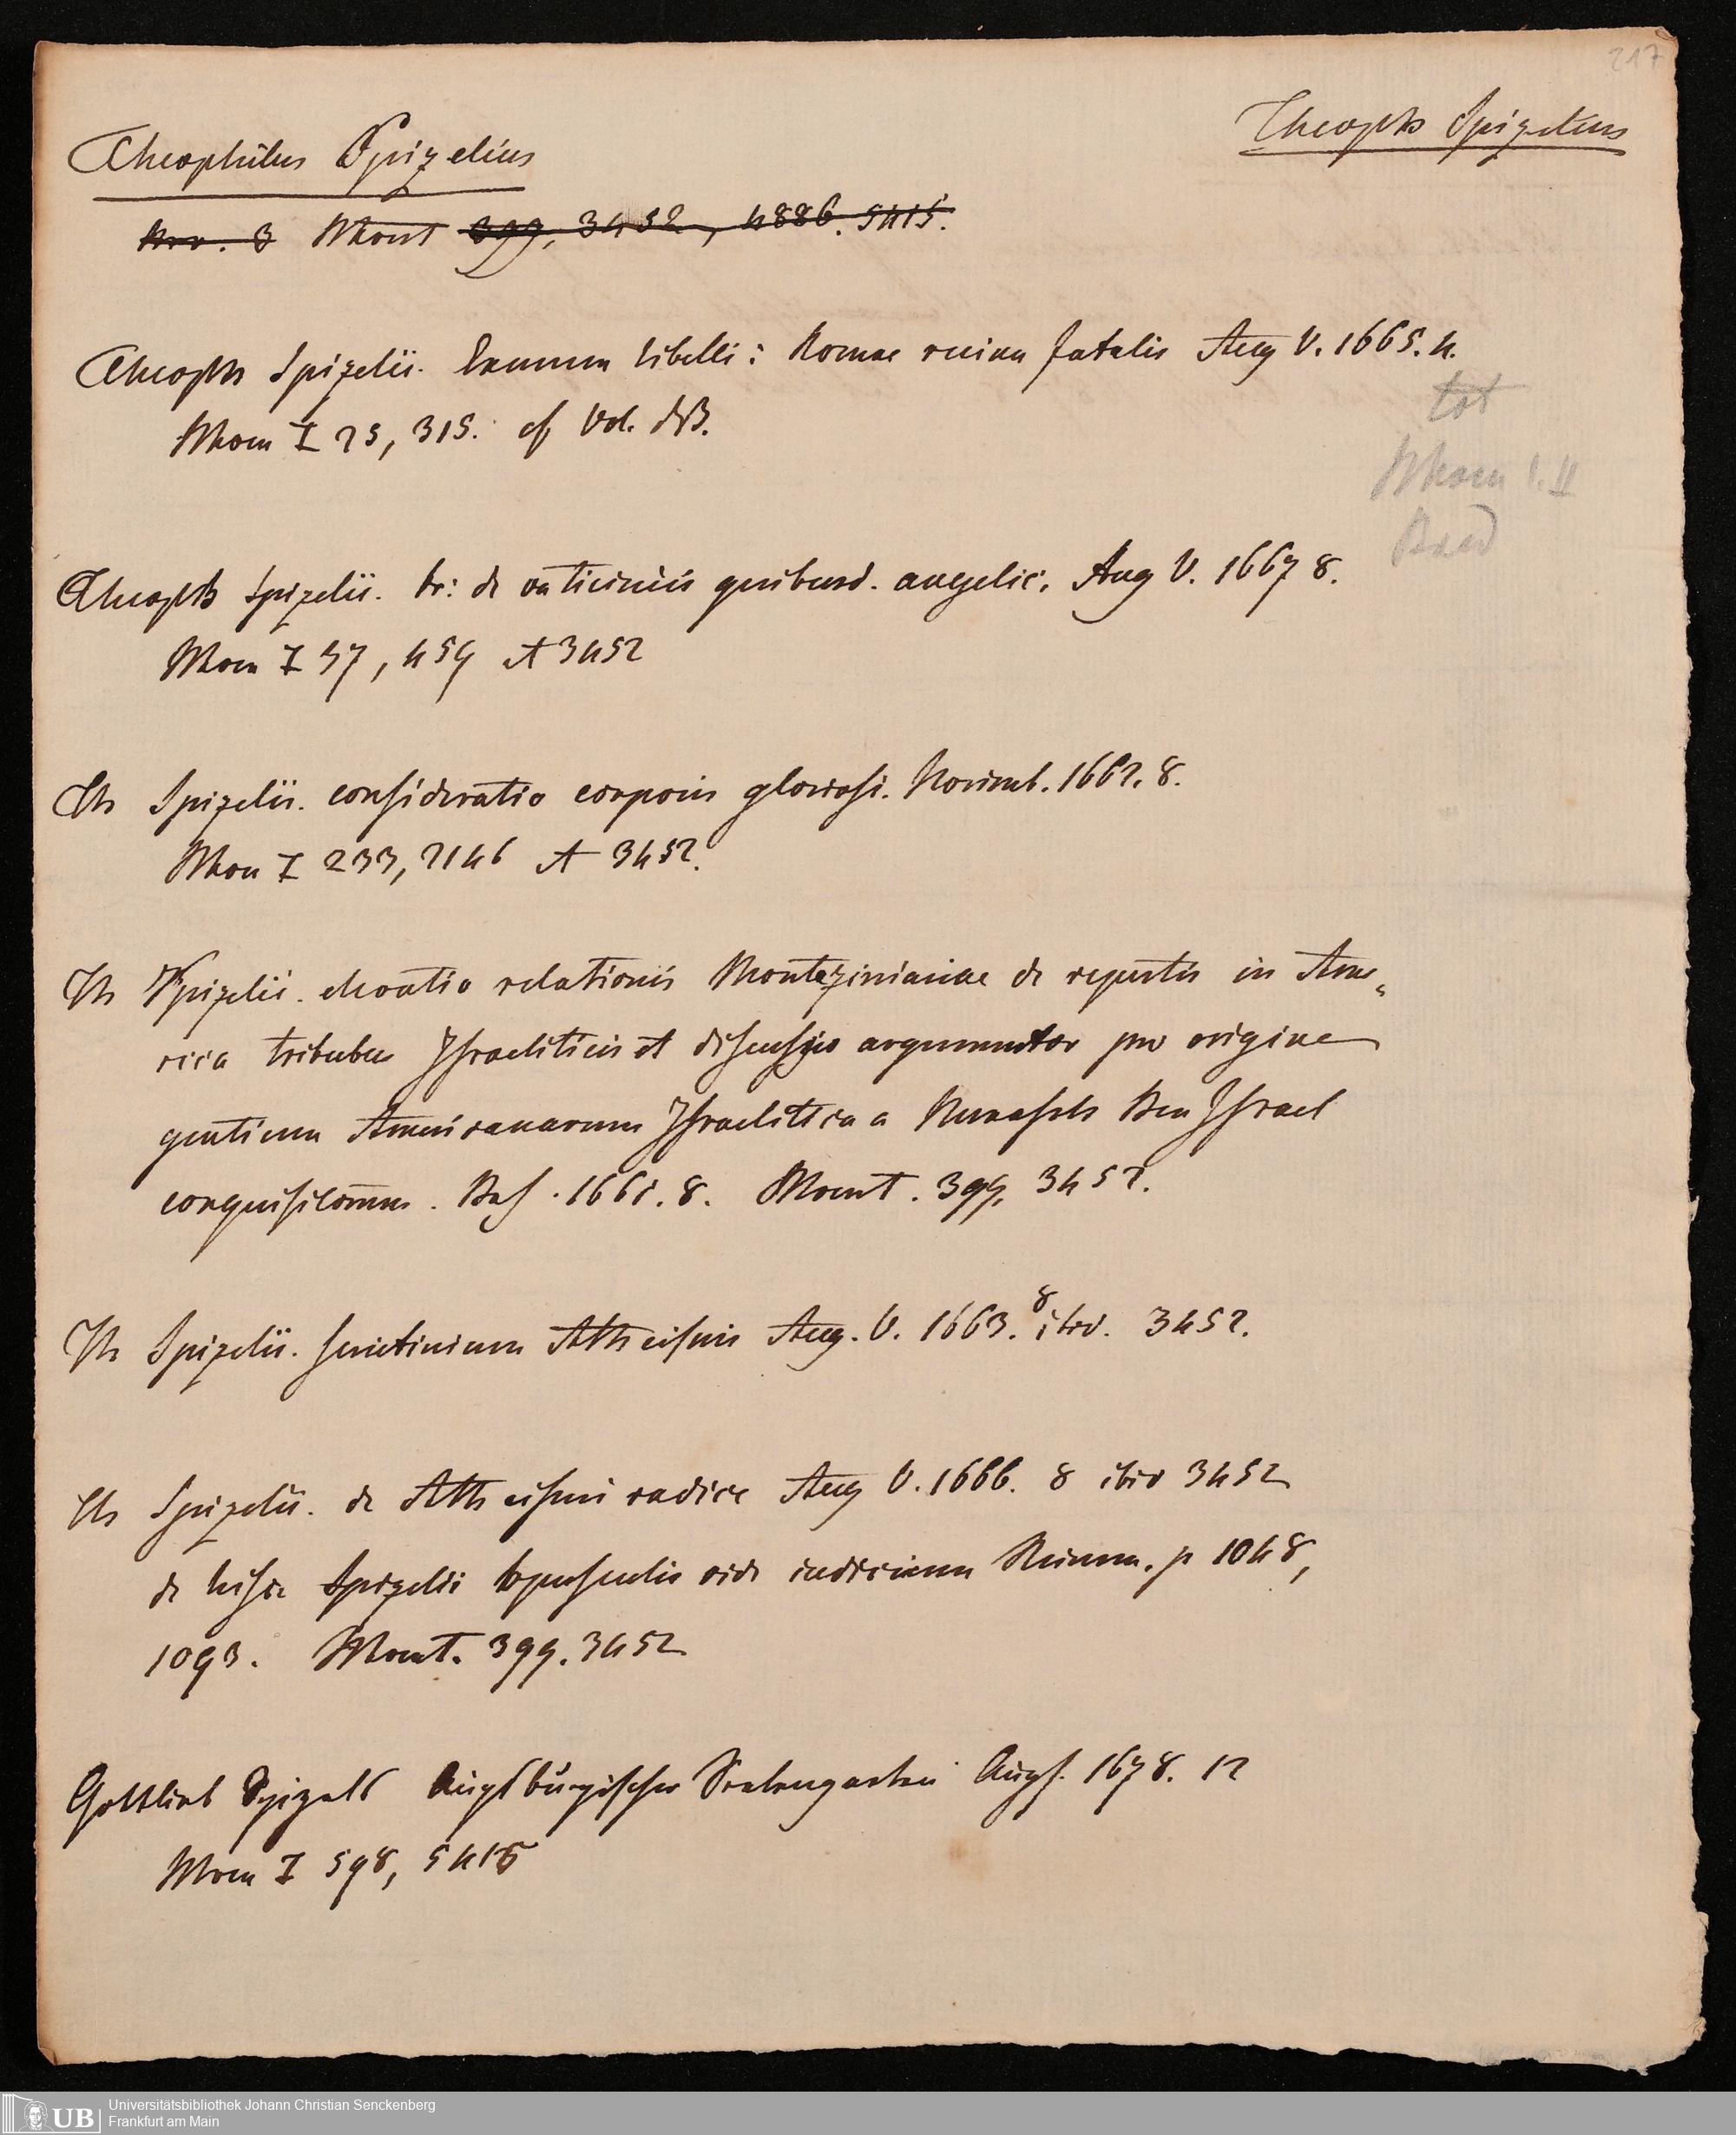 217
Theoph Spizelius
Theophilus Spizelius
Nro. 3 Mont 399, 3452, 4886. 5415.
Theoph Spizelii. Examen libelli: Romae ruina fatalis Aug V. 1665. 4.
Mon I 25, 315. cf Vol.
tot
Mon I. II
Theoph Spizelii. tr: de vaticiniis quibusd. angelic. Aug V. 1667 8.
Mon I 37, 459 et 3452
Th Spizelii. consideratio corporis gloriosi. Norimb. 1662. 8.
Mon I 233, 2146 et 3452.
Th Spizelii. elevatio relationis Montezinianae de repertis in Ame„
rica tribubus Israeliticis et discussio argumentor pro origine
gentium Americanarum Israelitica a Menasseh Ben Israel
conquisitorum. Bas. 1661. 8. Mont. 399, 3452.
Th Spizelii. scrutinium Atheismi Aug. V. 1663. 8 ibid. 3452.
Th Spizelii. de Atheismi radice Aug V. 1666. 8 ibid 3452
de hisce Spizelii opusculis vide indicium Reimm. p 1048,
1093. Mont. 399. 3452
Gottlieb Spizels Augsburgischer Seelengarten Augs. 1678. 12
Mon I 598, 5415
UB
Universitätsbibliothek Johann Christian Senckenberg
Frankfurt am Main